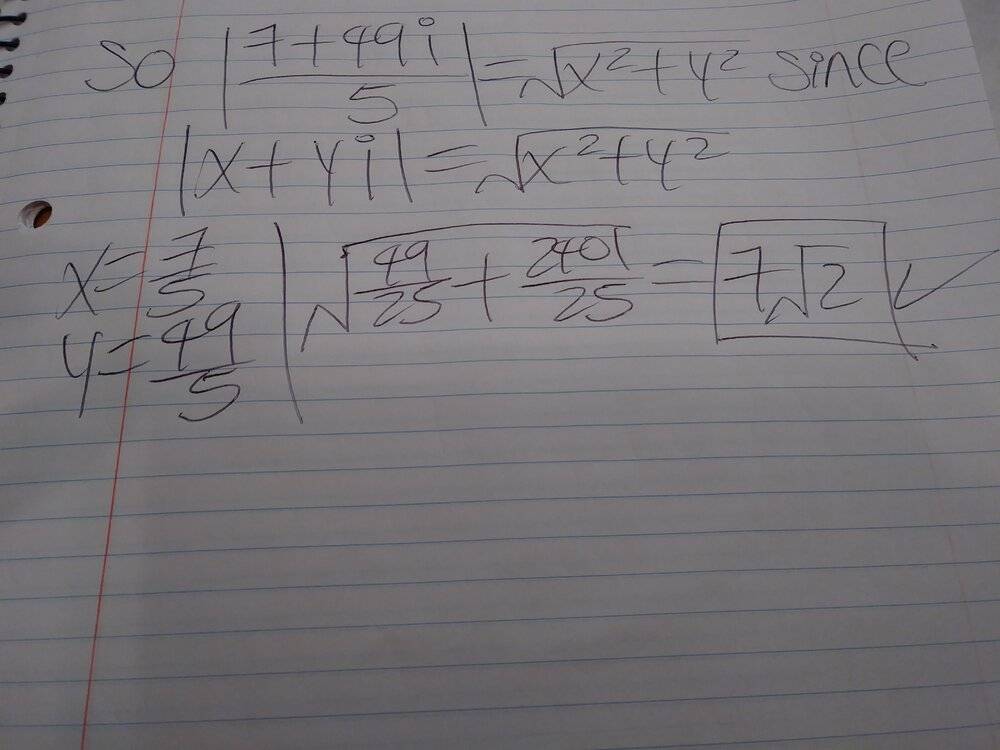 So |7+49i/5| = √x²+y² since
|x+yi| = √x²+y²
x=7/5 | √49/25 + 2401/25 = 7√2 ✓
y=49/5